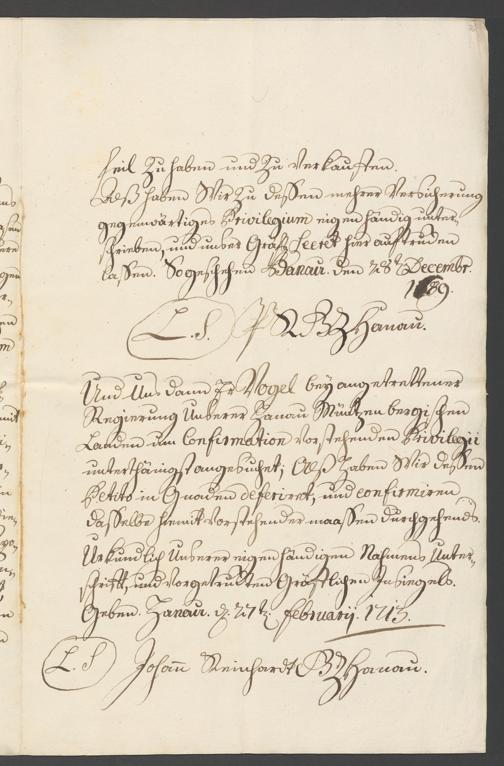 feil zu haben und zu verkauffen.
Alß haben Wir zu dessen mehrer Versicherung
gegenwärtiges Privilegium eigenhändig unter,
schrieben, und unser Gräfl. Secret hier auftrucken
lassen. So geschehen Hanau. den 28t Decembr.
1689.
L. S. PR GZ Hanau.
Und Uns dann Er Vogel bey angetrettener
Regierung Unserer Hanau Müntzenbergischen
Landen um Confirmation vorstehenden Privilegii
unterthänigst angesuchet; Alß haben Wir dessen
Petito in Gnaden deferiret, und confirmiren
dasselbe hiemit vorstehender maassen durchgehends.
Uhrkundlich Unserer eigenhändigen Nahmens Unter,
schrifft, und vorgetruckten Gräfflichen Insiegels.
Geben. Hanau. d. 27t. Februarij. 1713.
L. S Johann Reinhardt GZ Hanau.